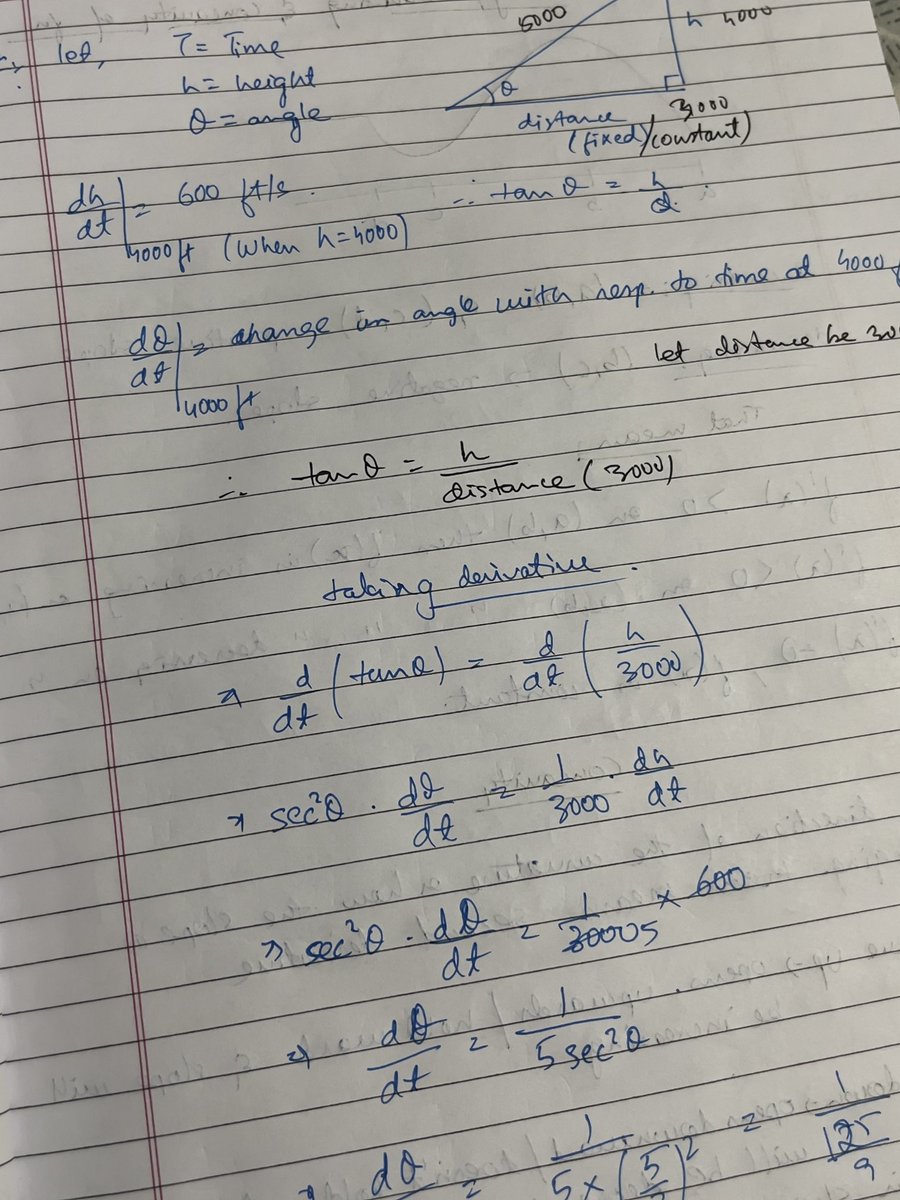 let, T = Time
h = height
θ = angle
5000
h 4000
θ
distance 3000
(fixed)/constant)
dh/dt|4000ft = 600 ft/s. (when h=4000)
∴ tan θ = h/d.
dθ/dt|4000 ft = change in angle with resp. to time at 4000
let distance be 30
∴ tanθ = h/distance (3000)
taking derivative.
⇒ d/dt (tanθ) = d/dt (h/3000)
⇒ sec²θ . dθ/dt = 1/3000 . dh/dt
⇒ sec²θ . dθ/dt = 1/30005 × 600
⇒ dθ/dt = 1/5 sec²θ
⇒ dθ = 1/5×(5/3)² = 1/125/9